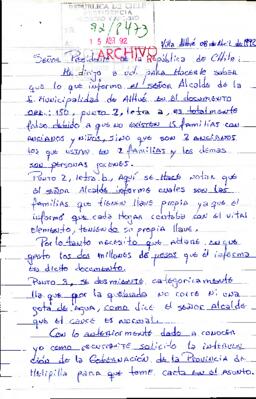 REPÚBLICA DE CHILE
PRESIDENCIA
92/7473
15 ABR 92
ARCHIVO
Villa Alhué 08 de Abril de 1992
Señor Presidente de la República de Chile:
Me dirijo a ud. para hacerle saber
que lo que informo el señor Alcalde de la
I. Municipalidad de Alhué en el documento
ORD.: 150, punto 2, letra a, es totalmente
falso debido a que no existen 15 familias con
ancianos y niños, sino que son 2 ancianos
los que viven en 2 familias y los demás
son personas jovenes.
Punto 2, letra b, Aquí se hace notar que
el señor Alcalde informe cuales son las
familias que tiene llave propia ya que el
informó que cada hogar contaba con el vital
elemento, teniendo su propia llave.
Por lo tanto necesito que aclare en que
gasto los dos millones de pesos que él informa
en dicho documento.
Punto 3, se desmiente categoricamente
ya que por la quebrada no corre ni una
gota de agua, como dice el señor Alcalde
que el cauce es normal.
Con lo anteriormente dado a conocer
yo como recurrente solicito la interven
ción de la Gobernación de la Provincia de
Melipilla para que tome carta en el asunto.